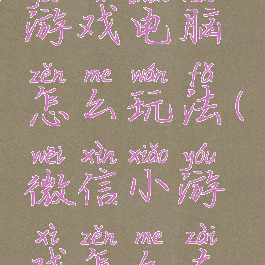 游戏电脑
zěn me wán fǎ
怎么玩法(
wēi xìn xiǎo yóu
微信小游
xì zěn me zài